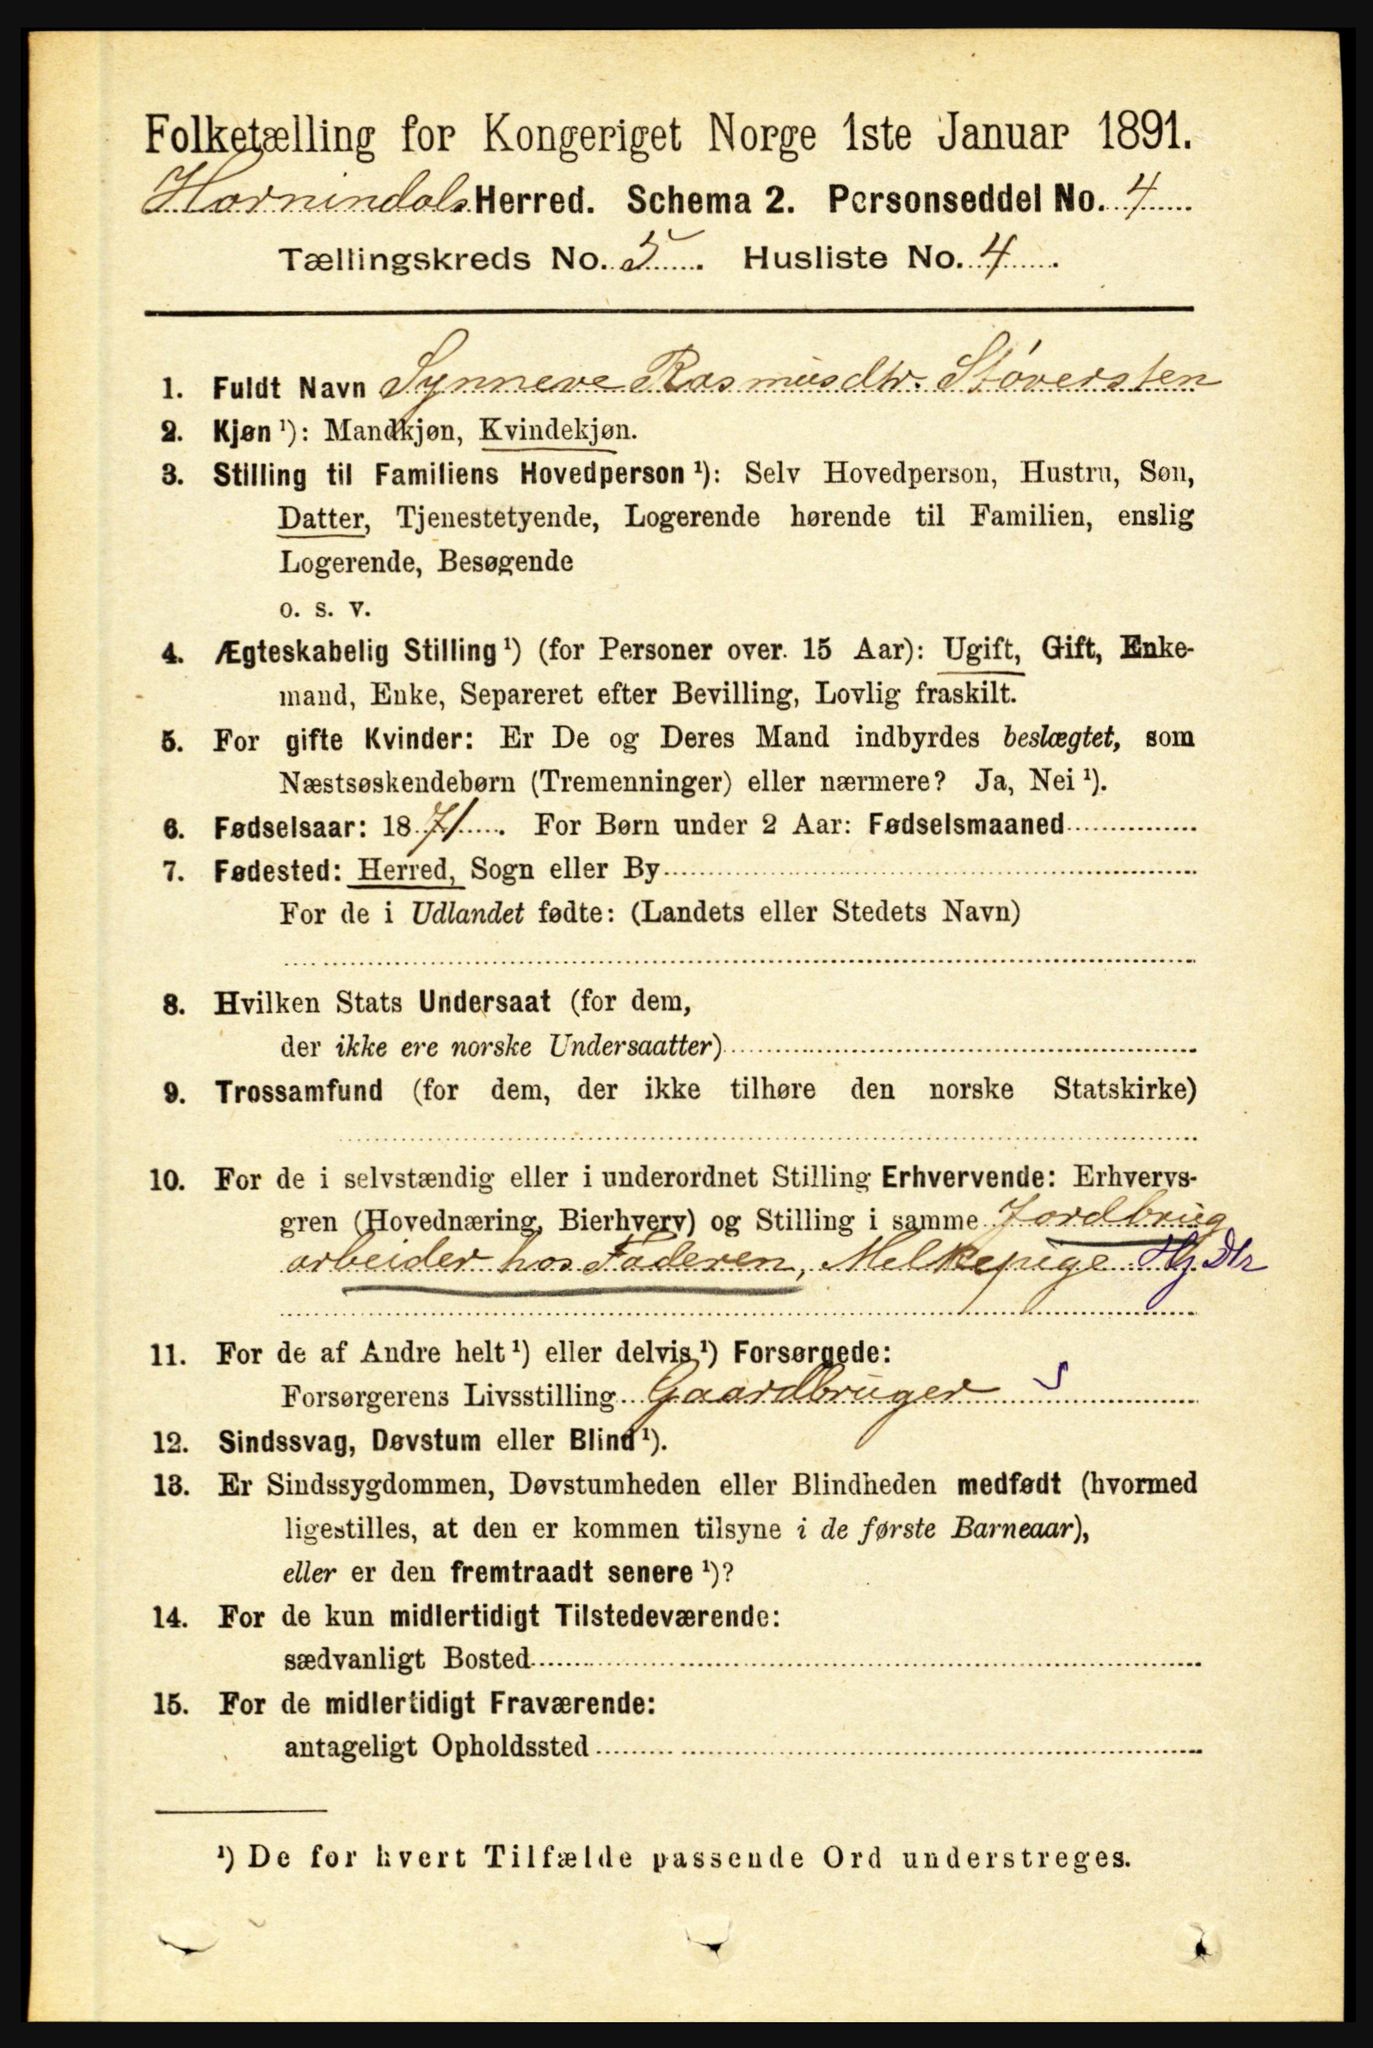 Folketælling for Kongeriget Norge 1ste Januar 1891.
Hornindals Herred. Schema 2. Personseddel No. 4
Tællingskreds No. 5. Husliste No. 4.
1. Fuldt Navn Synneve Rasmusdtr. Støversten
2. Kjøn ¹): Mandkjøn, Kvindekjøn.
3. Stilling til Familiens Hovedperson ¹): Selv Hovedperson, Hustru, Søn,
Datter, Tjenestetyende, Logerende hørende til Familien, enslig
Logerende, Besøgende
o. s. v.
4. Ægteskabelig Stilling ¹) (for Personer over 15 Aar): Ugift, Gift, Enke-
mand, Enke, Separeret efter Bevilling, Lovlig fraskilt.
5. For gifte Kvinder: Er De og Deres Mand indbyrdes beslægtet, som
Næstsøskendebørn (Tremenninger) eller nærmere? Ja, Nei ¹).
6. Fødselsaar: 1871. For Børn under 2 Aar: Fødselsmaaned
7. Fødested: Herred, Sogn eller By
For de i Udlandet fødte: (Landets eller Stedets Navn)
8. Hvilken Stats Undersaat (for dem,
der ikke ere norske Undersaatter)
9. Trossamfund (for dem, der ikke tilhøre den norske Statskirke)
10. For de i selvstændig eller i underordnet Stilling Erhvervende: Erhvervs-
gren (Hovednæring, Bierhverv) og Stilling i samme Jordbrug
arbeider hos Faderen, Melkepige Hj Dtr
11. For de af Andre helt ¹) eller delvis ¹) Forsørgede:
Forsørgerens Livsstilling Gaardbruger
12. Sindssvag, Døvstum eller Blind ¹).
13. Er Sindssygdommen, Døvstumheden eller Blindheden medfødt (hvormed
ligestilles, at den er kommen tilsyne i de første Barneaar),
eller er den fremtraadt senere ¹)?
14. For de kun midlertidigt Tilstedeværende:
sædvanligt Bosted
15. For de midlertidigt Fraværende:
antageligt Opholdssted
¹) De for hvert Tilfælde passende Ord understreges.